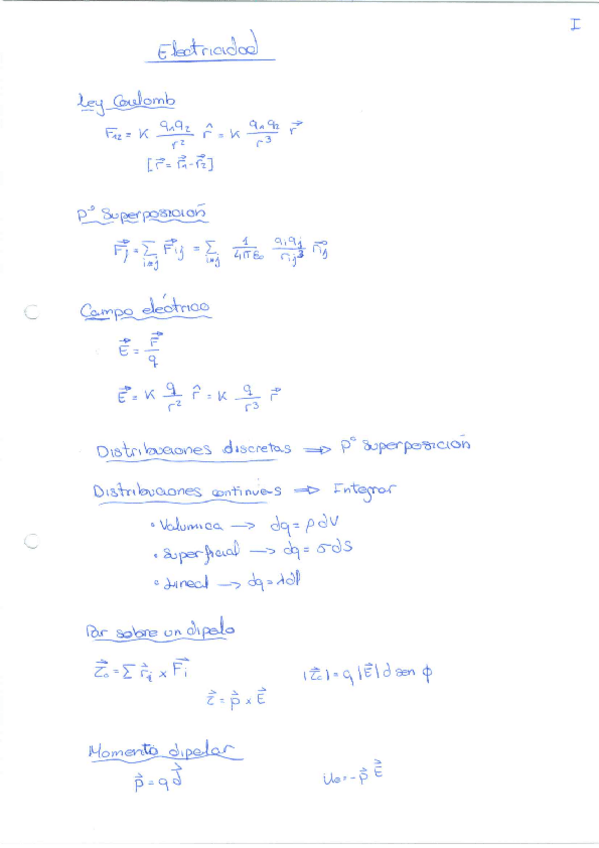 I
Electricidad
Ley Coulomb
F₁₂ = K q₁q₂/r² r̂ = K q₁q₂/r³ r⃗
[r⃗ = r⃗₁ - r⃗₂]
Pº Superposición
F⃗j = Σ i≠j F⃗ij = Σ i≠j 1/4πε₀ qiqj/rij³ r⃗ij
Campo eléctrico
E⃗ = F⃗/q
E⃗ = K q/r² r̂ = K q/r³ r⃗
Distribuciones discretas ⇒ Pº Superposición
Distribuciones continuas ⇒ Integrar
• Volumica → dq = ρdV
• Superficial → dq = σdS
• Lineal → dq = λdl
Par sobre un dipolo
τ⃗₀ = Σ r⃗i × F⃗i |τ⃗₀| = q |E⃗| d sen ϕ
τ⃗ = p⃗ × E⃗
Momento dipolar
p⃗ = q d⃗ U₀ = - p⃗ E⃗